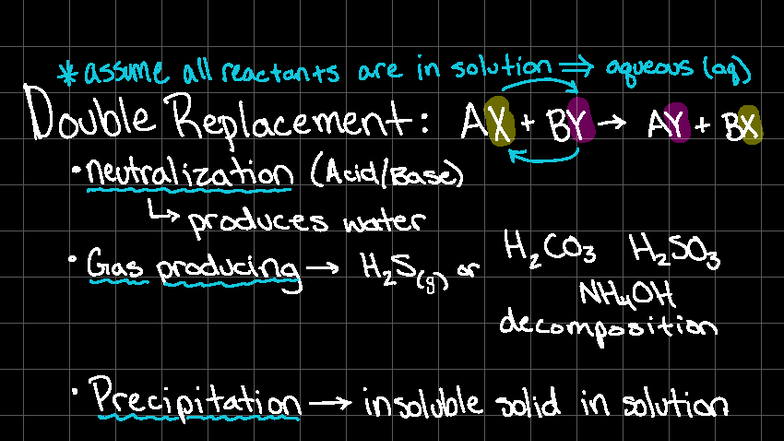 * assume all reactants are in solution ⇒ aqueous (aq)
Double Replacement: AX + BY → AY + BX
• neutralization (Acid/Base)
↳ produces water
• Gas producing → H₂S(g) or H₂CO₃ H₂SO₃
NH₄OH
decomposition
• Precipitation → insoluble solid in solution